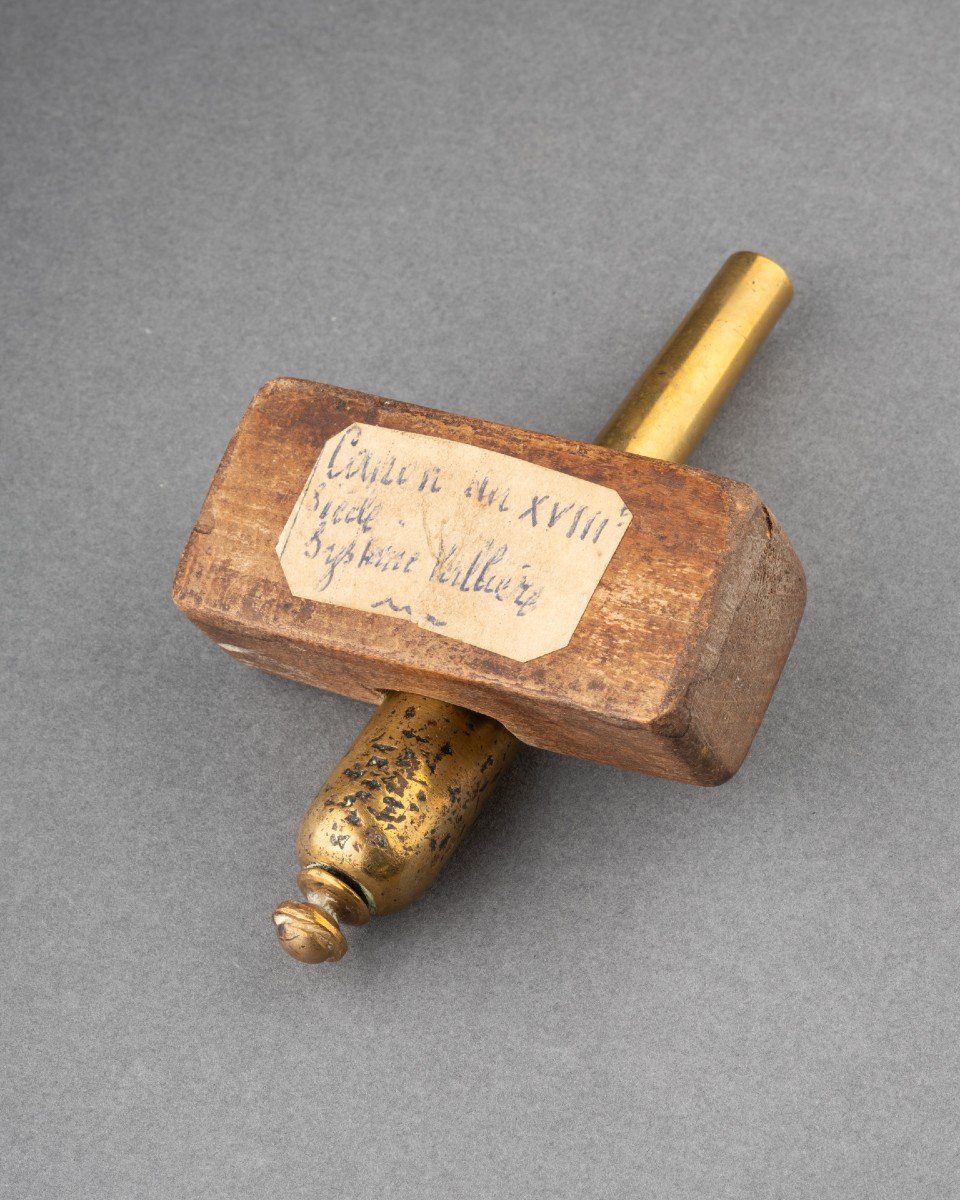 Canon du XVIIIe
Siècle.
Système Vallière